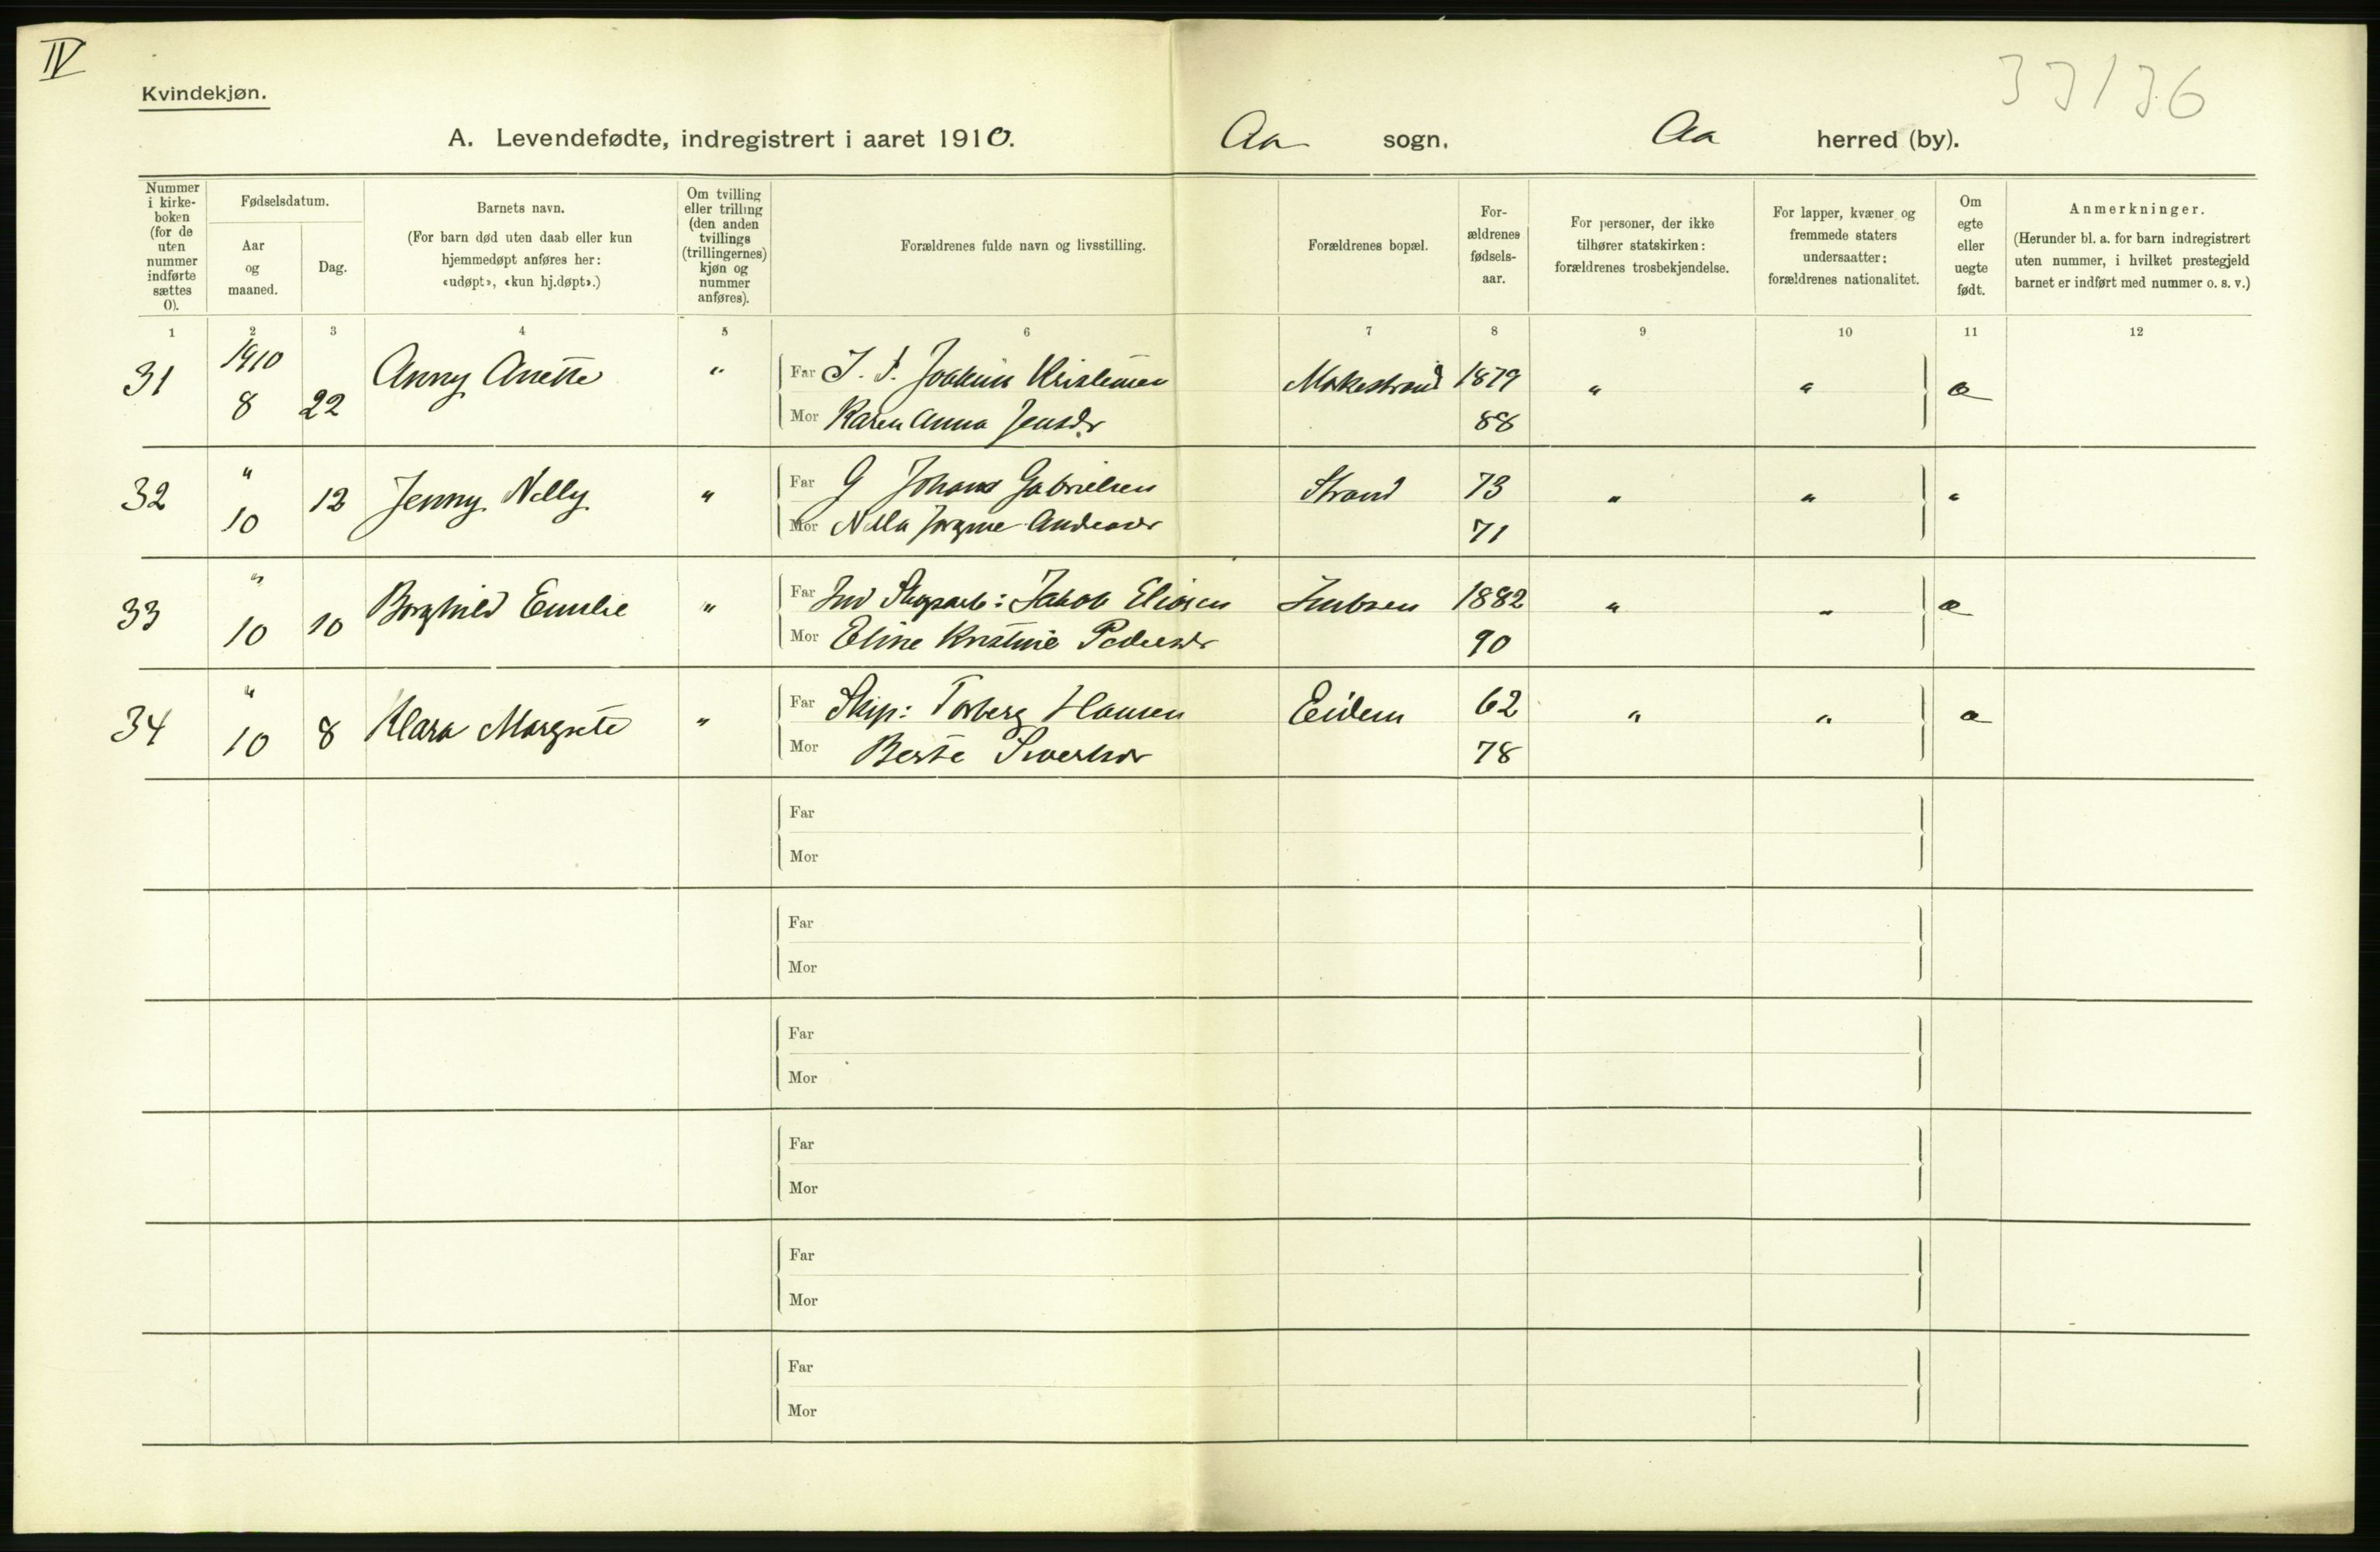 IV
Kvindekjøn.
33/36
A. Levendefødte, indregistrert i aaret 1910. Aa sogn, Aa herred (by).
Nummer i kirkeboken (for de uten nummer indførte sættes 0).
Fødselsdatum.
Aar og maaned.
Dag.
Barnets navn.
(For barn død uten daab eller kun hjemmedøpt anføres her: «udøpt», «kun hj.døpt».)
Om tvilling eller trilling (den anden tvillings (trillingernes) kjøn og nummer anføres).
Forældrenes fulde navn og livsstilling.
Forældrenes bopæl.
Forældrenes fødselsaar.
For personer, der ikke tilhører statskirken: forældrenes trosbekjendelse.
For lapper, kvæner og fremmede staters undersaatter: forældrenes nationalitet.
Om egte eller uegte født.
Anmerkninger.
(Herunder bl. a. for barn indregistrert uten nummer, i hvilket prestegjeld barnet er indført med nummer o. s. v.)
1 2 3 4 5 6 7 8 9 10 11 12
31 1910 8 22 Anny Anette " Far J. F. Joakim Kristensen 1879 " "
Mor Karen Anna Jensdr 88
32 " 10 12 Jenny Nelly " Far G Johans Gabrielsen Strand 73 " " "
Mor Andreasdr 71
33 " 10 10 Borghild Emelie " Far Jakob Eliasen 1882 " "
Mor Eline Kristine Pedersdr 90
34 " 10 8 Klara Margrete " Far Skip: Torberg Hansen Eidem 62 " "
Mor Berte Sivertsdr 78
Far
Mor
Far
Mor
Far
Mor
Far
Mor
Far
Mor
Far
Mor